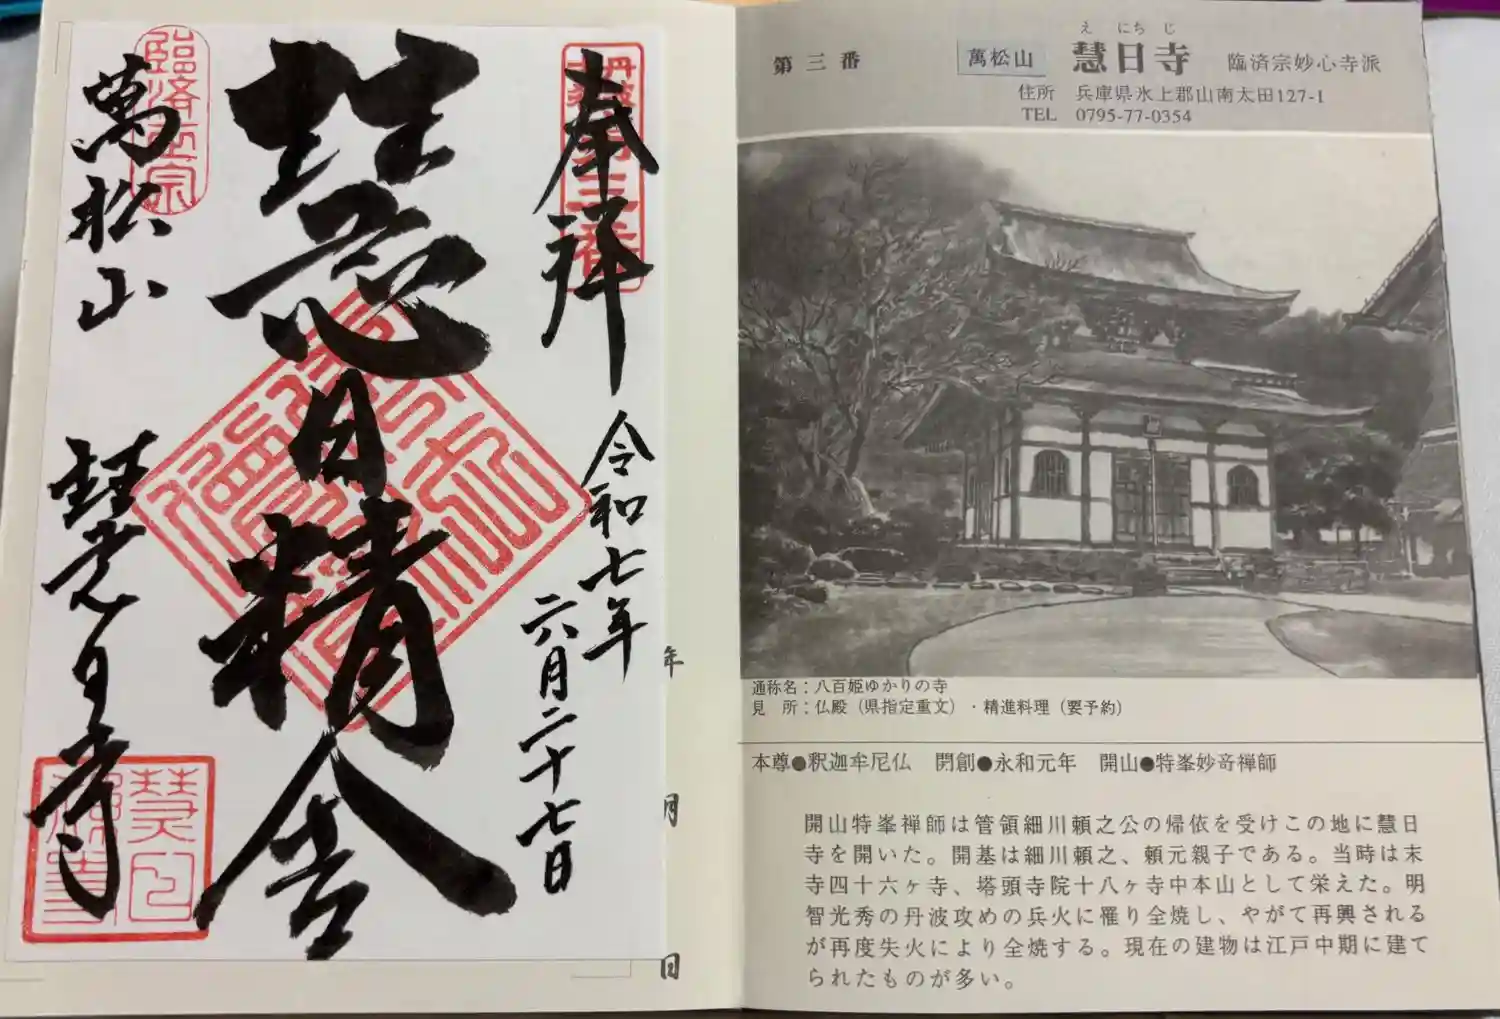 奉拝
丹波
第三番
令和七年
六月二十七日
慧日精舎
臨済宗
萬松山
慧日寺
年
月
日
え にち じ
第三番 萬松山 慧日寺 臨済宗妙心寺派
住所 兵庫県氷上郡山南太田127-1
TEL 0795-77-0354
通称名：八百姫ゆかりの寺
見 所：仏殿（県指定重文）・精進料理（要予約）
本尊●釈迦牟尼仏 開創●永和元年 開山●特峯妙奇禅師
開山特峯禅師は管領細川頼之公の帰依を受けこの地に慧日
寺を開いた。開基は細川頼之、頼元親子である。当時は末
寺四十六ヶ寺、塔頭寺院十八ヶ寺中本山として栄えた。明
智光秀の丹波攻めの兵火に罹り全焼し、やがて再興される
が再度失火により全焼する。現在の建物は江戸中期に建て
られたものが多い。